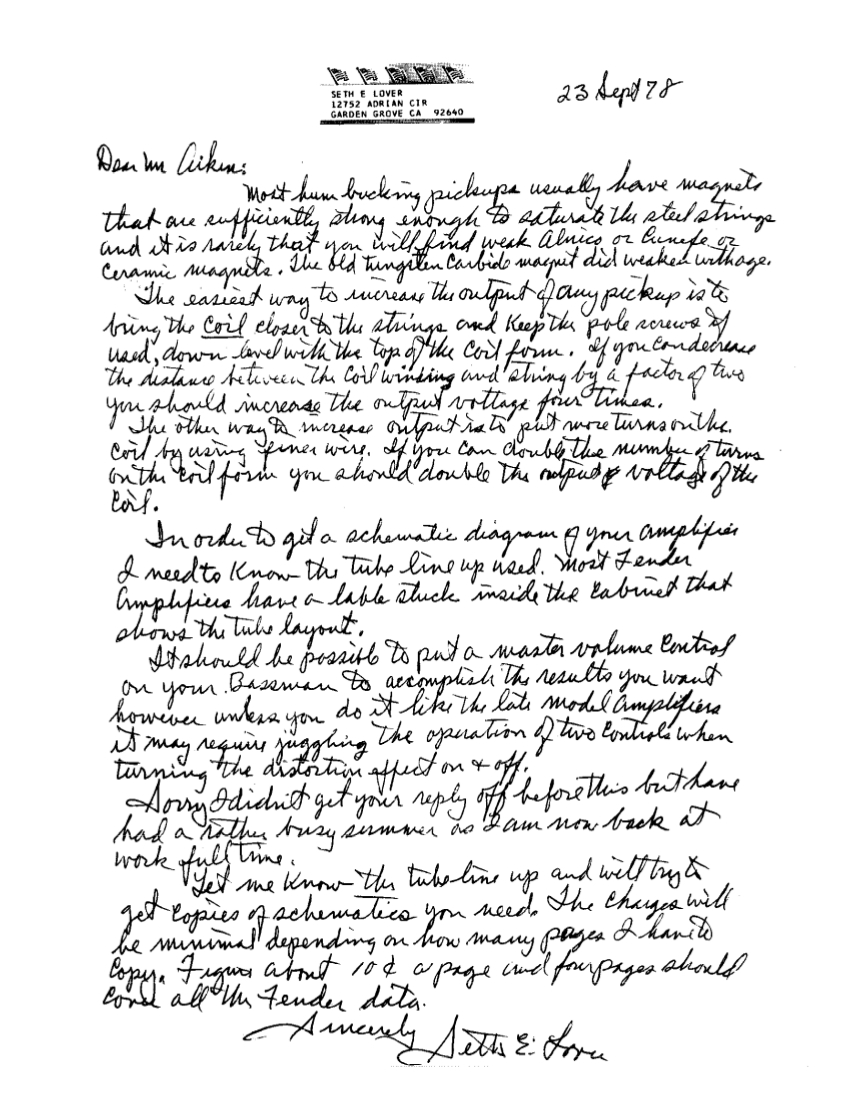 SETH E LOVER
12752 ADRIAN CIR
GARDEN GROVE CA 92640
23 Sept 78
Dear Mr Aiken:
Most hum bucking pickups usually have magnets
that are sufficiently strong enough to saturate the steel strings
and it is rarely that you will find weak Alnico or Cunife or
Ceramic magnets. The old tungsten Carbide magnet did weaken with age.
The easiest way to increase the output of any pickup is to
bring the Coil closer to the strings and Keep the pole screws if
used, down level with the top of the Coil form. If you can decrease
the distance between the Coil winding and string by a factor of two
you should increase the output voltage four times.
The other way to increase output is to put more turns on the
Coil by using finer wire. If you can double the number of turns
on the Coil form you should double the output voltage of the
Coil.
In order to get a schematic diagram of your amplifier
I need to Know the tube line up used. Most Fender
Amplifiers have a lable stuck inside the Cabinet that
shows the tube layout.
It should be possible to put a master volume Control
on your Bassman to accomplish the results you want
however unless you do it like the late model Amplifiers
it may require juggling the operation of two Controls when
turning the distortion effect on & off.
Sorry I didn't get your reply off before this but have
had a rather busy summer as I am now back at
work full time.
Let me Know the tube line up and will try to
get Copies of schematics you need. The Charges will
be minimal depending on how many pages I have to
Copy. Figure about 10¢ a page and four pages should
Cover all the Fender data.
Sincerely Seth E. Lover